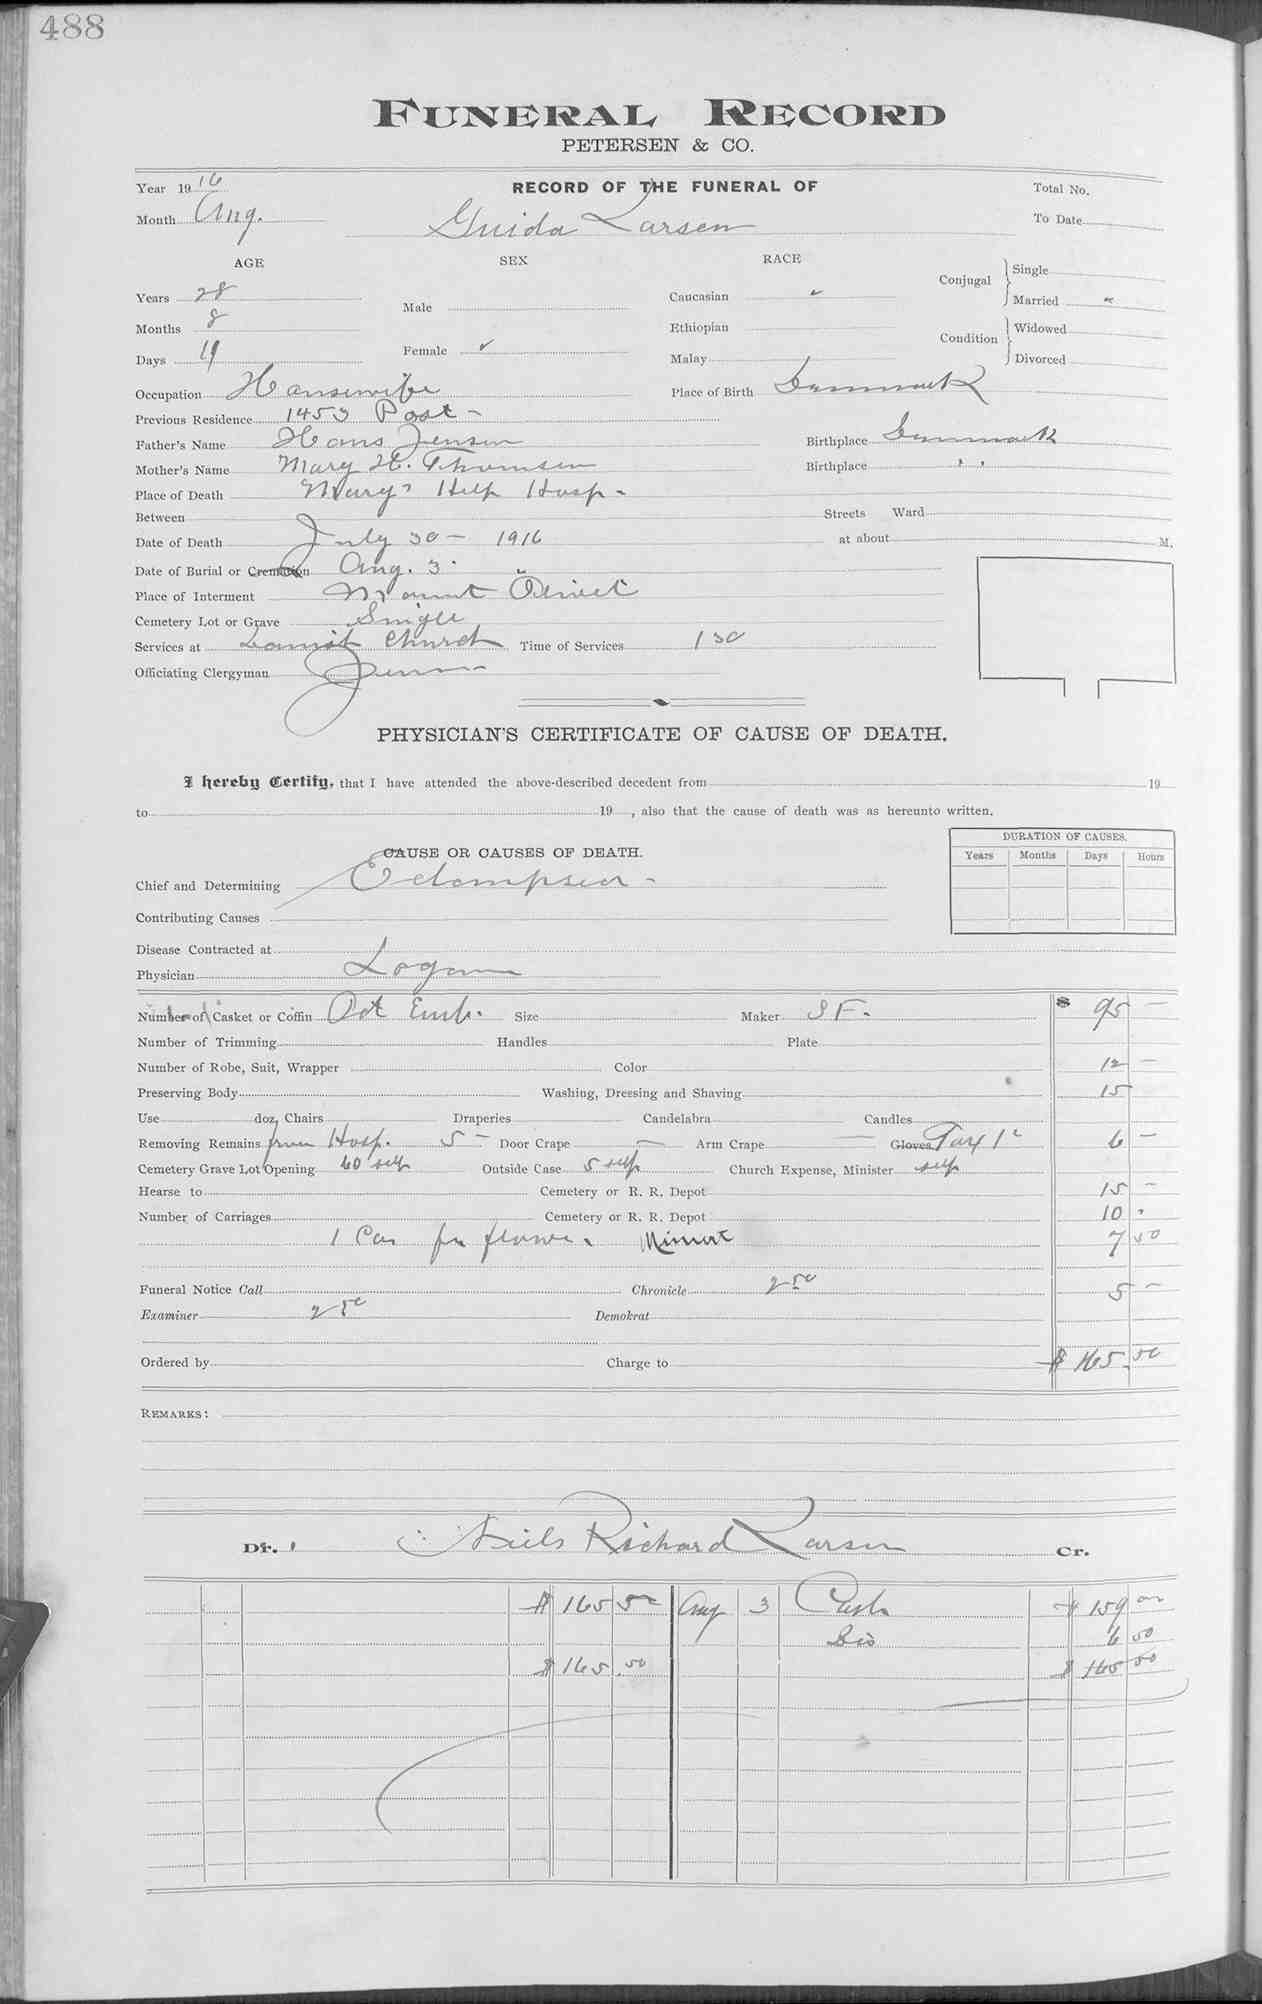 488
FUNERAL RECORD
PETERSEN & CO.
Year 1916 RECORD OF THE FUNERAL OF Total No.
Month Aug. Guida Larsen To Date
AGE SEX RACE
Conjugal Single
Years 28 Male Caucasian ✓ Married ✓
Months 8 Ethiopian Condition Widowed
Days 19 Female ✓ Malay Divorced
Occupation Housewife Place of Birth Denmark
Previous Residence 1453 Post -
Father's Name Hans Jensen Birthplace Denmark
Mother's Name Mary H. Thomsen Birthplace " "
Place of Death Marys Help Hosp -
Between Streets Ward
Date of Death July 30 - 1916 at about M.
Date of Burial or Cremation Aug. 3.
Place of Interment Mount Olivet
Cemetery Lot or Grave Single
Services at Danish Church Time of Services 1 30
Officiating Clergyman
PHYSICIAN'S CERTIFICATE OF CAUSE OF DEATH.
I hereby Certify, that I have attended the above-described decedent from 19
to 19 , also that the cause of death was as hereunto written.
DURATION OF CAUSES.
CAUSE OR CAUSES OF DEATH. Years Months Days Hours
Chief and Determining Eclampsia -
Contributing Causes
Disease Contracted at
Physician Logan
Number of Casket or Coffin Oct Emb. Size Maker S F. $ 95 -
Number of Trimming Handles Plate
Number of Robe, Suit, Wrapper Color 12 -
Preserving Body Washing, Dressing and Shaving 15
Use doz. Chairs Draperies Candelabra Candles
Removing Remains from Hosp. 5 - Door Crape - Arm Crape - Gloves 6 -
Cemetery Grave Lot Opening 60 self Outside Case 5 self Church Expense, Minister self
Hearse to Cemetery or R. R. Depot 15 -
Number of Carriages Cemetery or R. R. Depot 10 .
1 Car for flowers 7 50
Funeral Notice Call Chronicle 2 50 5 -
Examiner 2 50 Demokrat
Ordered by Charge to $ 165.50
REMARKS:
Dr. Niels Richard Larsen Cr.
$ 165 50 Aug 3 Cash $ 159 00
Dis 6 50
$ 165.50 $ 165 50